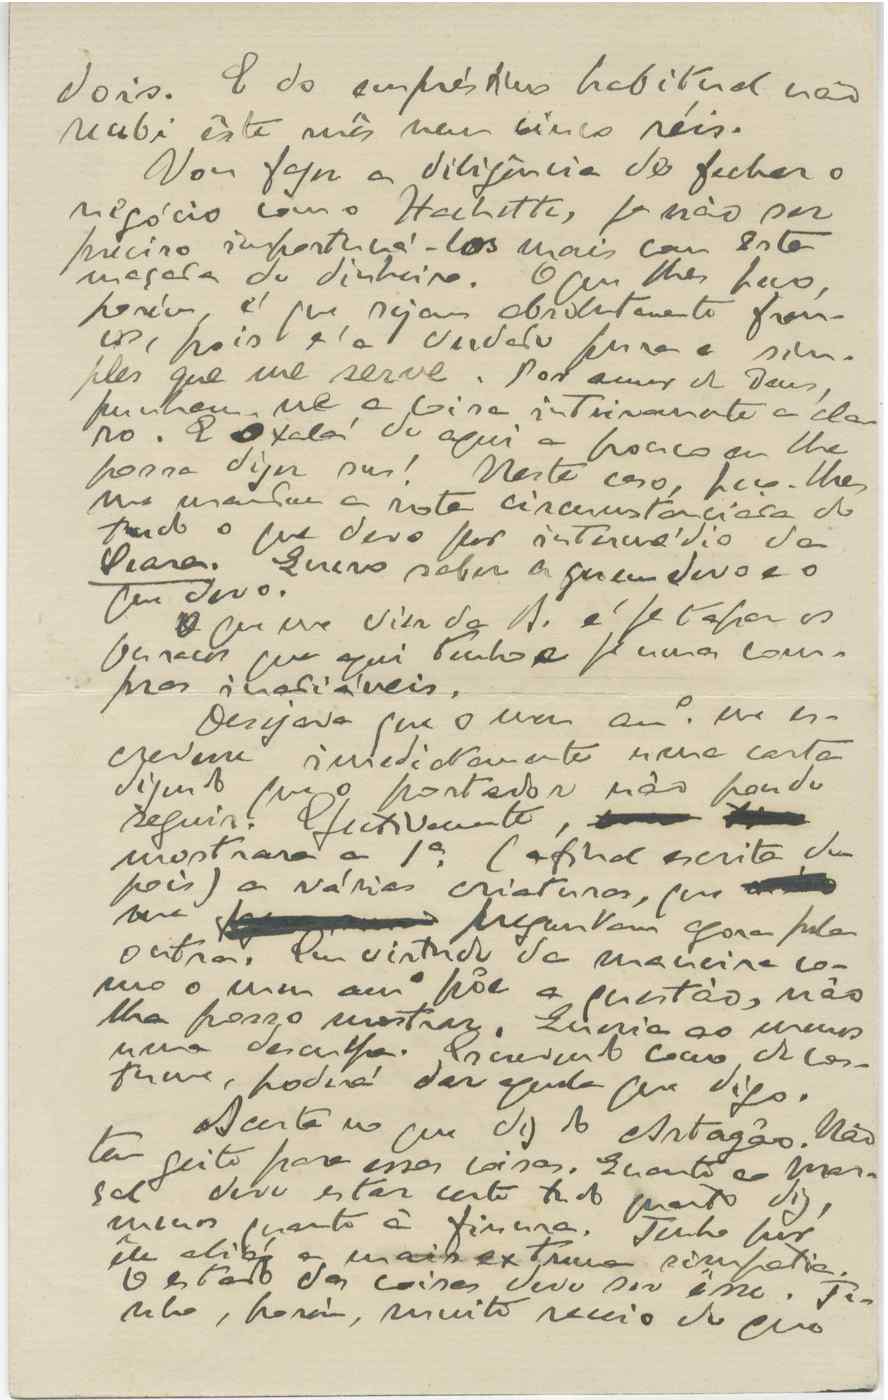 dois. E do empréstimo habitual não
recebi êste mês nem cinco réis.
Vou fazer a diligência de fechar o
negócio com o Hachette, pa não ser
preciso importuná-los mais com esta
maçada do dinheiro. O que lhes peço,
porém, é que sejam absolutamente fran-
cos, pois é a verdade pura e sim-
ples que me serve. Por amor de Deus,
ponham-me a coisa inteiramente a cla-
ro. E oxalá de aqui a pouco eu lhe
possa dizer sus! Neste caso, peço-lhes
me mandem a nota circunstanciada de
tudo o que devo por intermédio da
Seara. Quero saber a quem devo e o
que devo.
O que me vier da A. é pa tapar os
buracos que aqui tenho e pa umas com-
pras inadiáveis.
Desejava que o meu amo. me es-
crevesse imediatamente uma carta
dizendo que o portador não poude
seguir. Efectivamente,
mostrara a 1ª. (afinal escrita de-
pois) a várias criaturas, que
me preguntam agora pela
outra. Em virtude da maneira co-
mo o meu amo põe a questão, não
lha posso mostrar. Queria ao menos
uma desculpa. Escrevendo como de cos-
tume, poderá dar aquela que digo.
Acerta no que diz do Artagão. Não
tem geito para essas coisas. Quanto ao Mar-
sal deve estar certo tudo quanto diz,
menos quanto à finura. Tenho por
êle aliás a mais extrema simpatia.
O estado das coisas deve ser êsse. Te-
nho, porém, muito receio de que